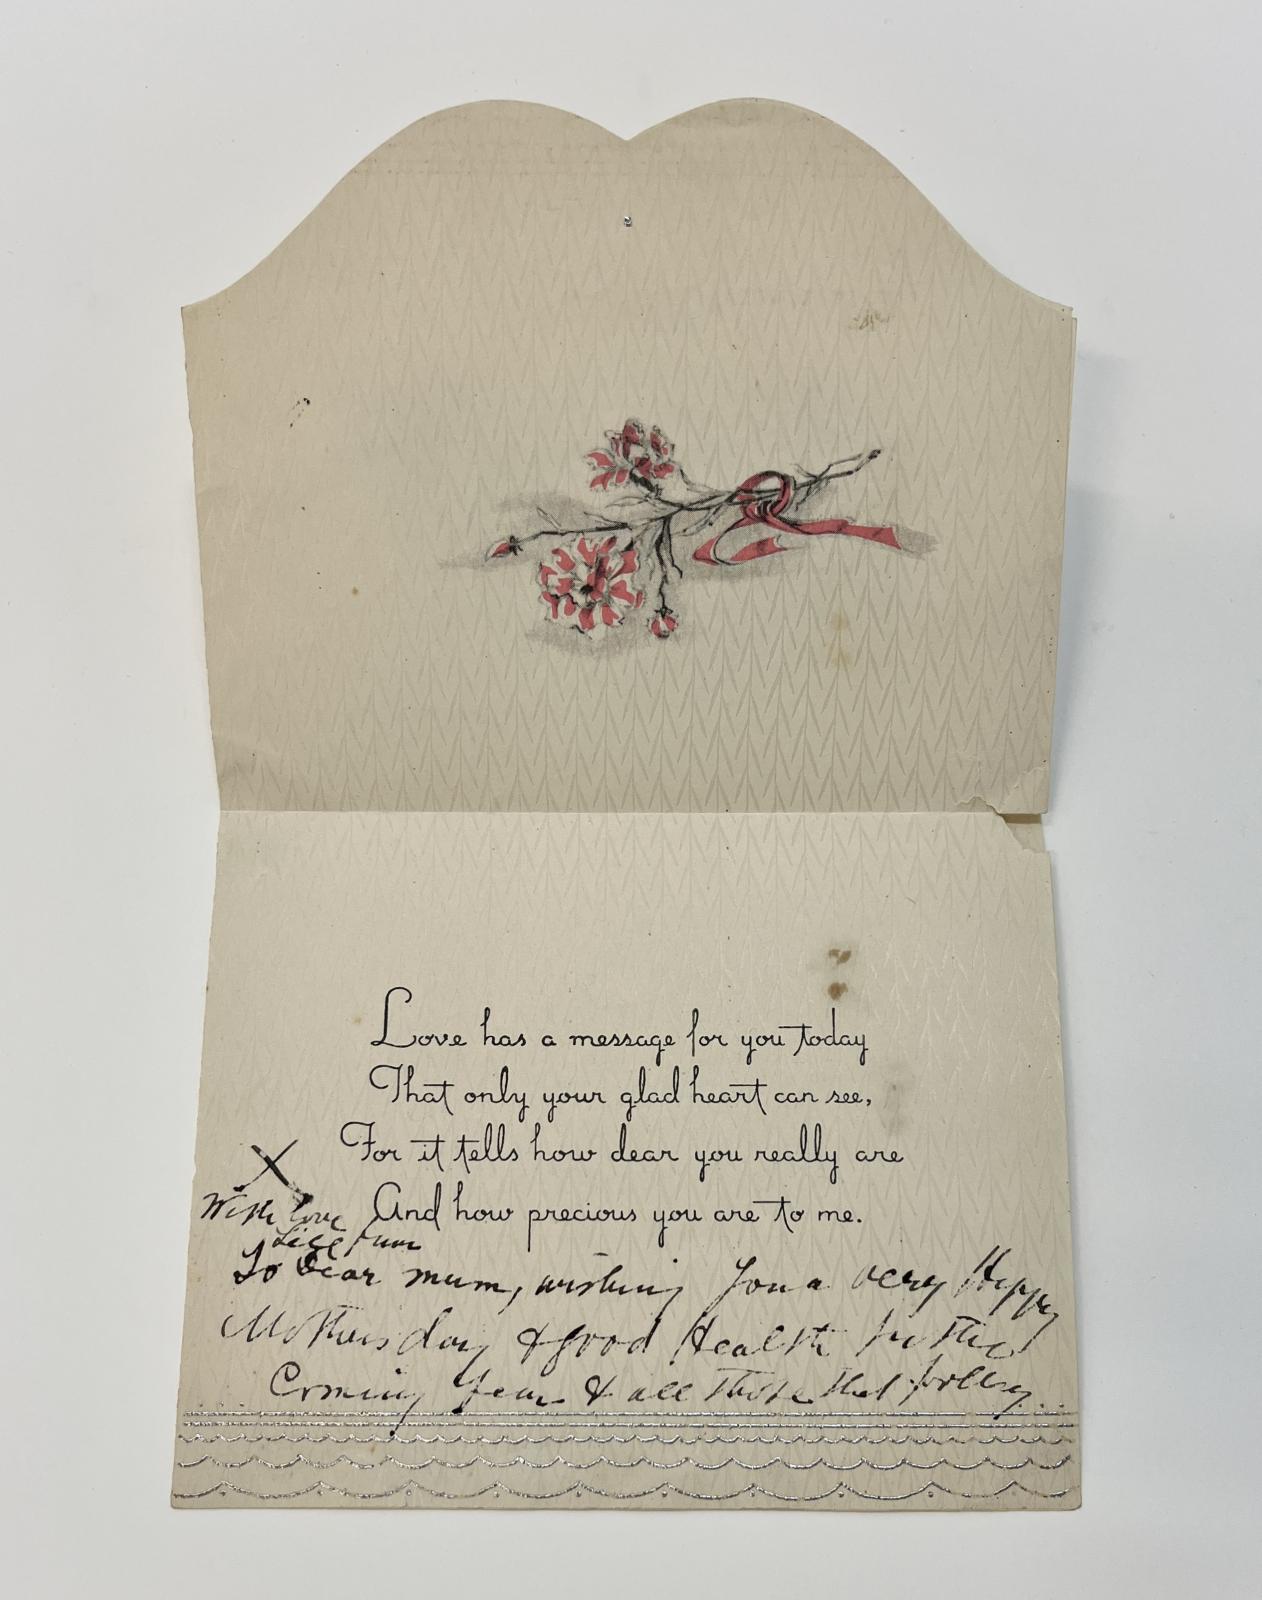 Love has a message for you today
That only your glad heart can see,
For it tells how dear you really are
And how precious you are to me.
X
With love
To Dear mum, wishing you a very Happy
Mothers day & good Health for the
Coming year & all those that follow